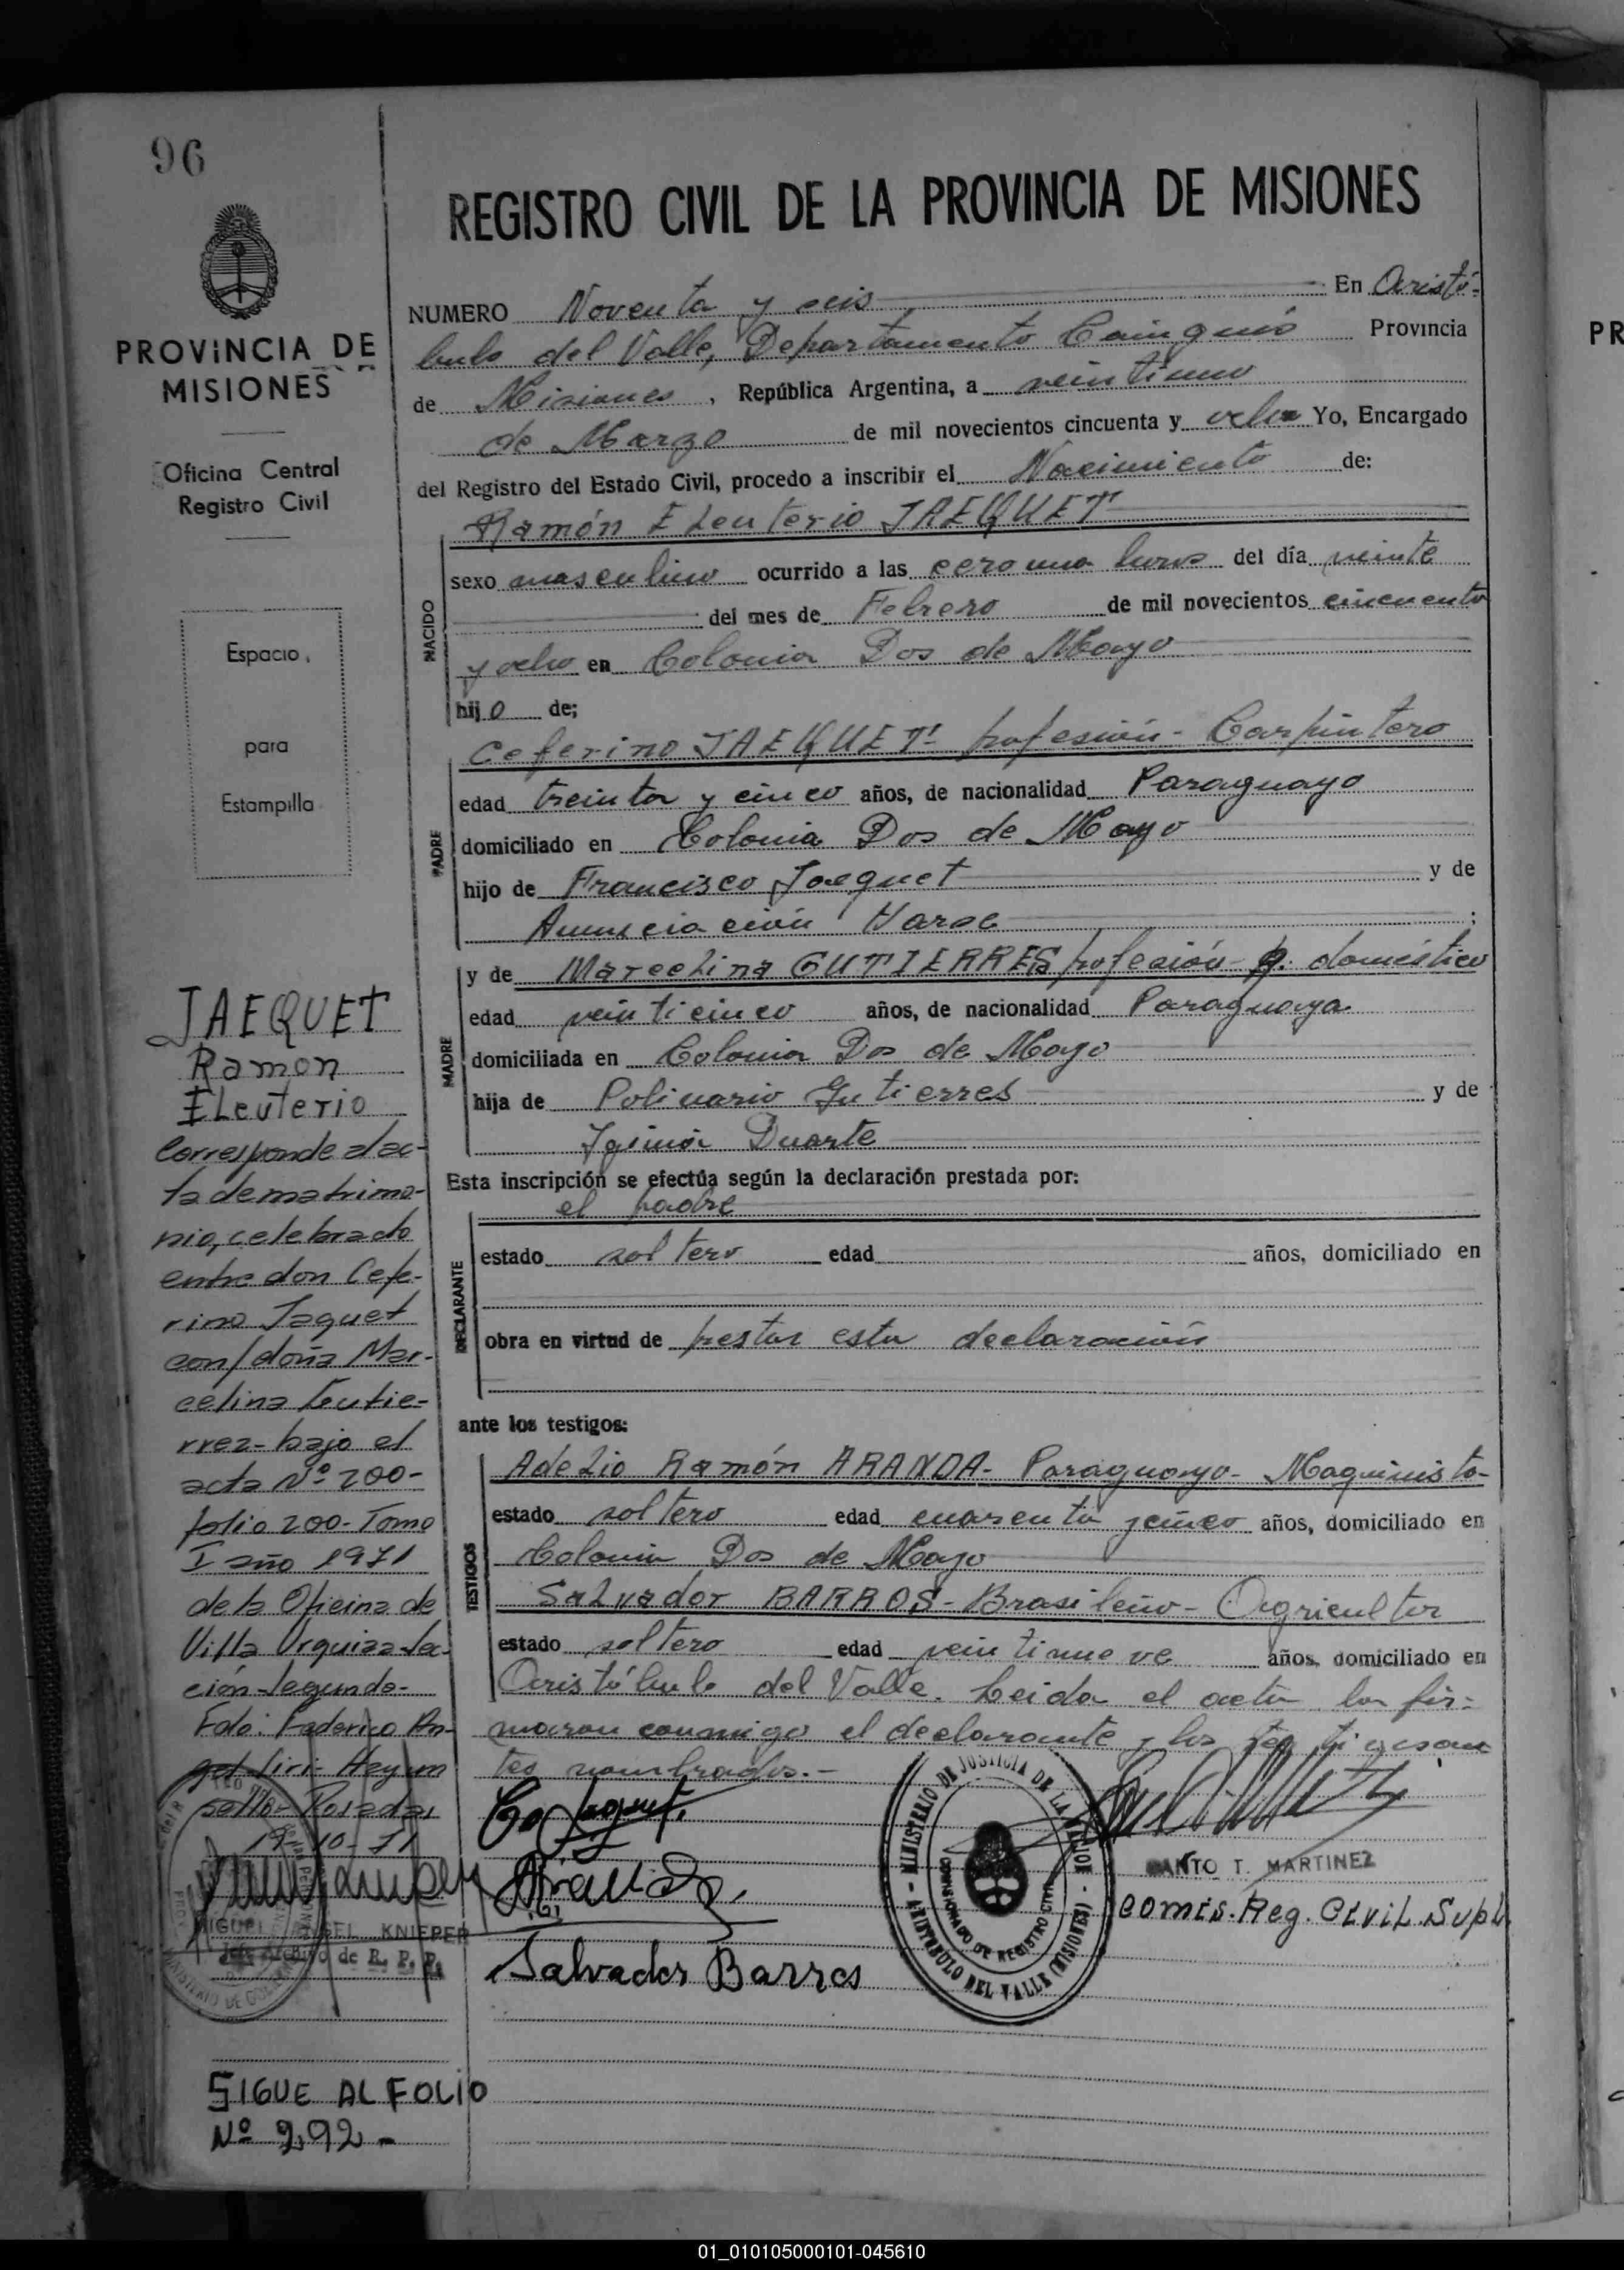 96
REGISTRO CIVIL DE LA PROVINCIA DE MISIONES
PROVINCIA DE
MISIONES
Oficina Central
Registro Civil
Espacio
para
Estampilla
NUMERO Noventa y seis En Aristó-
bulo del Valle, Departamento Cainguás Provincia
de Misiones, República Argentina, a veintiuno
de Marzo de mil novecientos cincuenta y ocho Yo, Encargado
del Registro del Estado Civil, procedo a inscribir el Nacimiento de:
Ramón Eleuterio JAEQUET
NACIDO
sexo masculino ocurrido a las cero una horas del día veinte
del mes de Febrero de mil novecientos cincuenta
y ocho en Colonia Dos de Mayo
hijo de;
Ceferino JAEQUET- profesión- Carpintero
PADRE
edad treinta y cinco años, de nacionalidad Paraguayo
domiciliado en Colonia Dos de Mayo
hijo de Francisco Jaequet y de
Anunciación ;
y de Marcelina GUTIERRES profesión- q. doméstico
MADRE
edad veinticinco años, de nacionalidad Paraguaya
domiciliada en Colonia Dos de Mayo
hija de Polinario Gutierres y de
Duarte
Esta inscripción se efectúa según la declaración prestada por:
el padre
DECLARANTE
estado soltero edad años, domiciliado en
obra en virtud de prestar esta declaración
ante los testigos:
TESTIGOS
Adelio Ramón ARANDA- Paraguayo- Maquinista-
estado soltero edad cuarenta y cinco años, domiciliado en
Colonia Dos de Mayo
Salvador BARROS- Brasileño- Agricultor
estado soltero edad veintinueve años, domiciliado en
Aristóbulo del Valle. Leida el acta la fir-
maron conmigo el declarante y los testigos an
tes nombrados.-
Salvador Barros
MINISTERIO DE JUSTICIA DE LA NACION
COMISIONADO DE REGISTRO CIVIL
ARISTOBULO DEL VALLE (MISIONES)
SANTO T. MARTINEZ
Comis. Reg. Civil Supl.
JAEQUET
Ramon
Eleuterio
Corresponde al ac-
ta de matrimo-
nio, celebrado
entre don Cefe-
rino Jaquet
con/doña Mar-
celina Gutie-
rrez- bajo el
acta Nº 200-
folio 200- Tomo
I año 1971
de la Oficina de
Villa Urquiza Sec-
ción- Segunda-
Fdo: Federico An-
gel
Posadas
19-10-71
MIGUEL ANGEL KNIEPER
Jefe Archivo de R. P. P.
SIGUE AL FOLIO
Nº 292-
PR
01_010105000101-045610